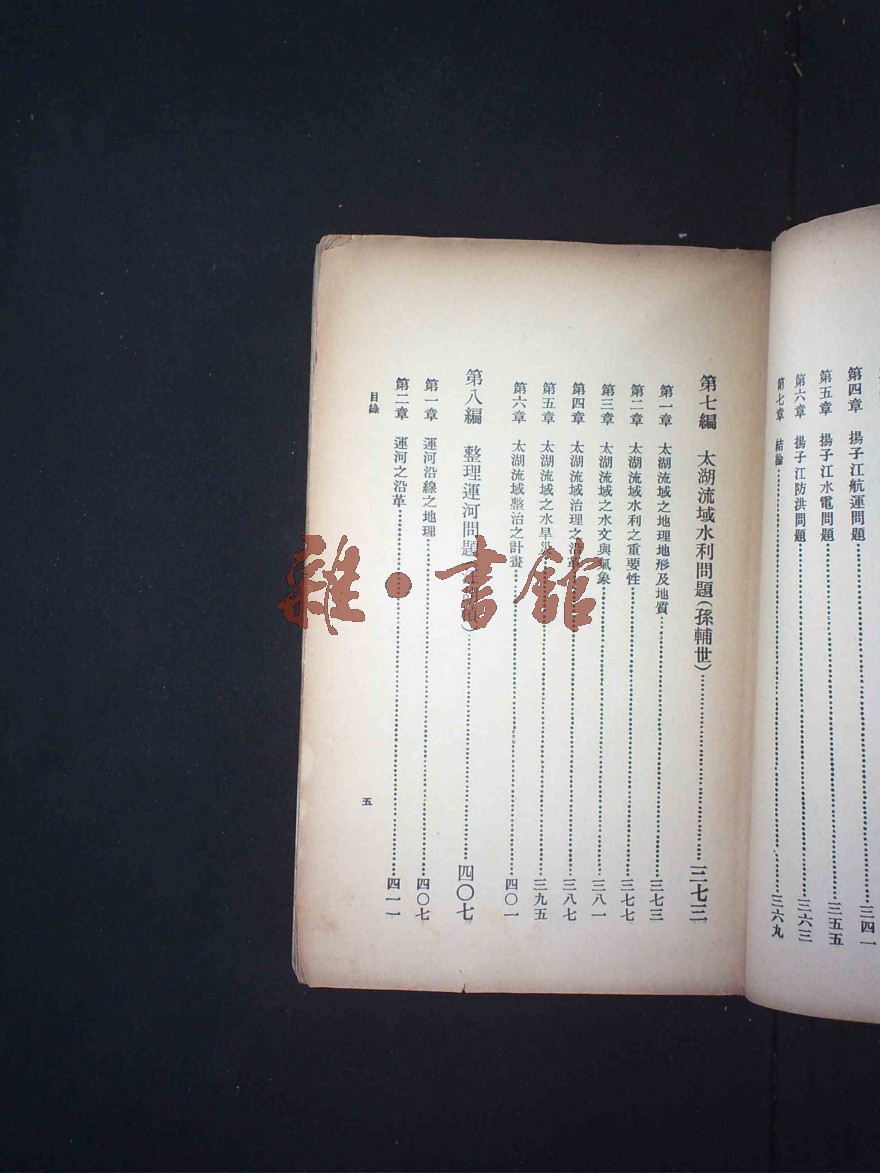 第四章　揚子江航運問題……三四一
第五章　揚子江水電問題……三五五
第六章　揚子江防洪問題……三六三
第七章　結論……三六九
第七編　太湖流域水利問題(孫輔世)……三七三
第一章　太湖流域之地理地形及地質……三七三
第二章　太湖流域水利之重要性……三七七
第三章　太湖流域之水文與氣象……三八一
第四章　太湖流域治理之沿革……三八七
第五章　太湖流域之水旱災……三九五
第六章　太湖流域整治之計畫……四〇一
第八編　整理運河問題(　)……四〇七
第一章　運河沿線之地理……四〇七
第二章　運河之沿革……四一一
目錄
五
雜·書館